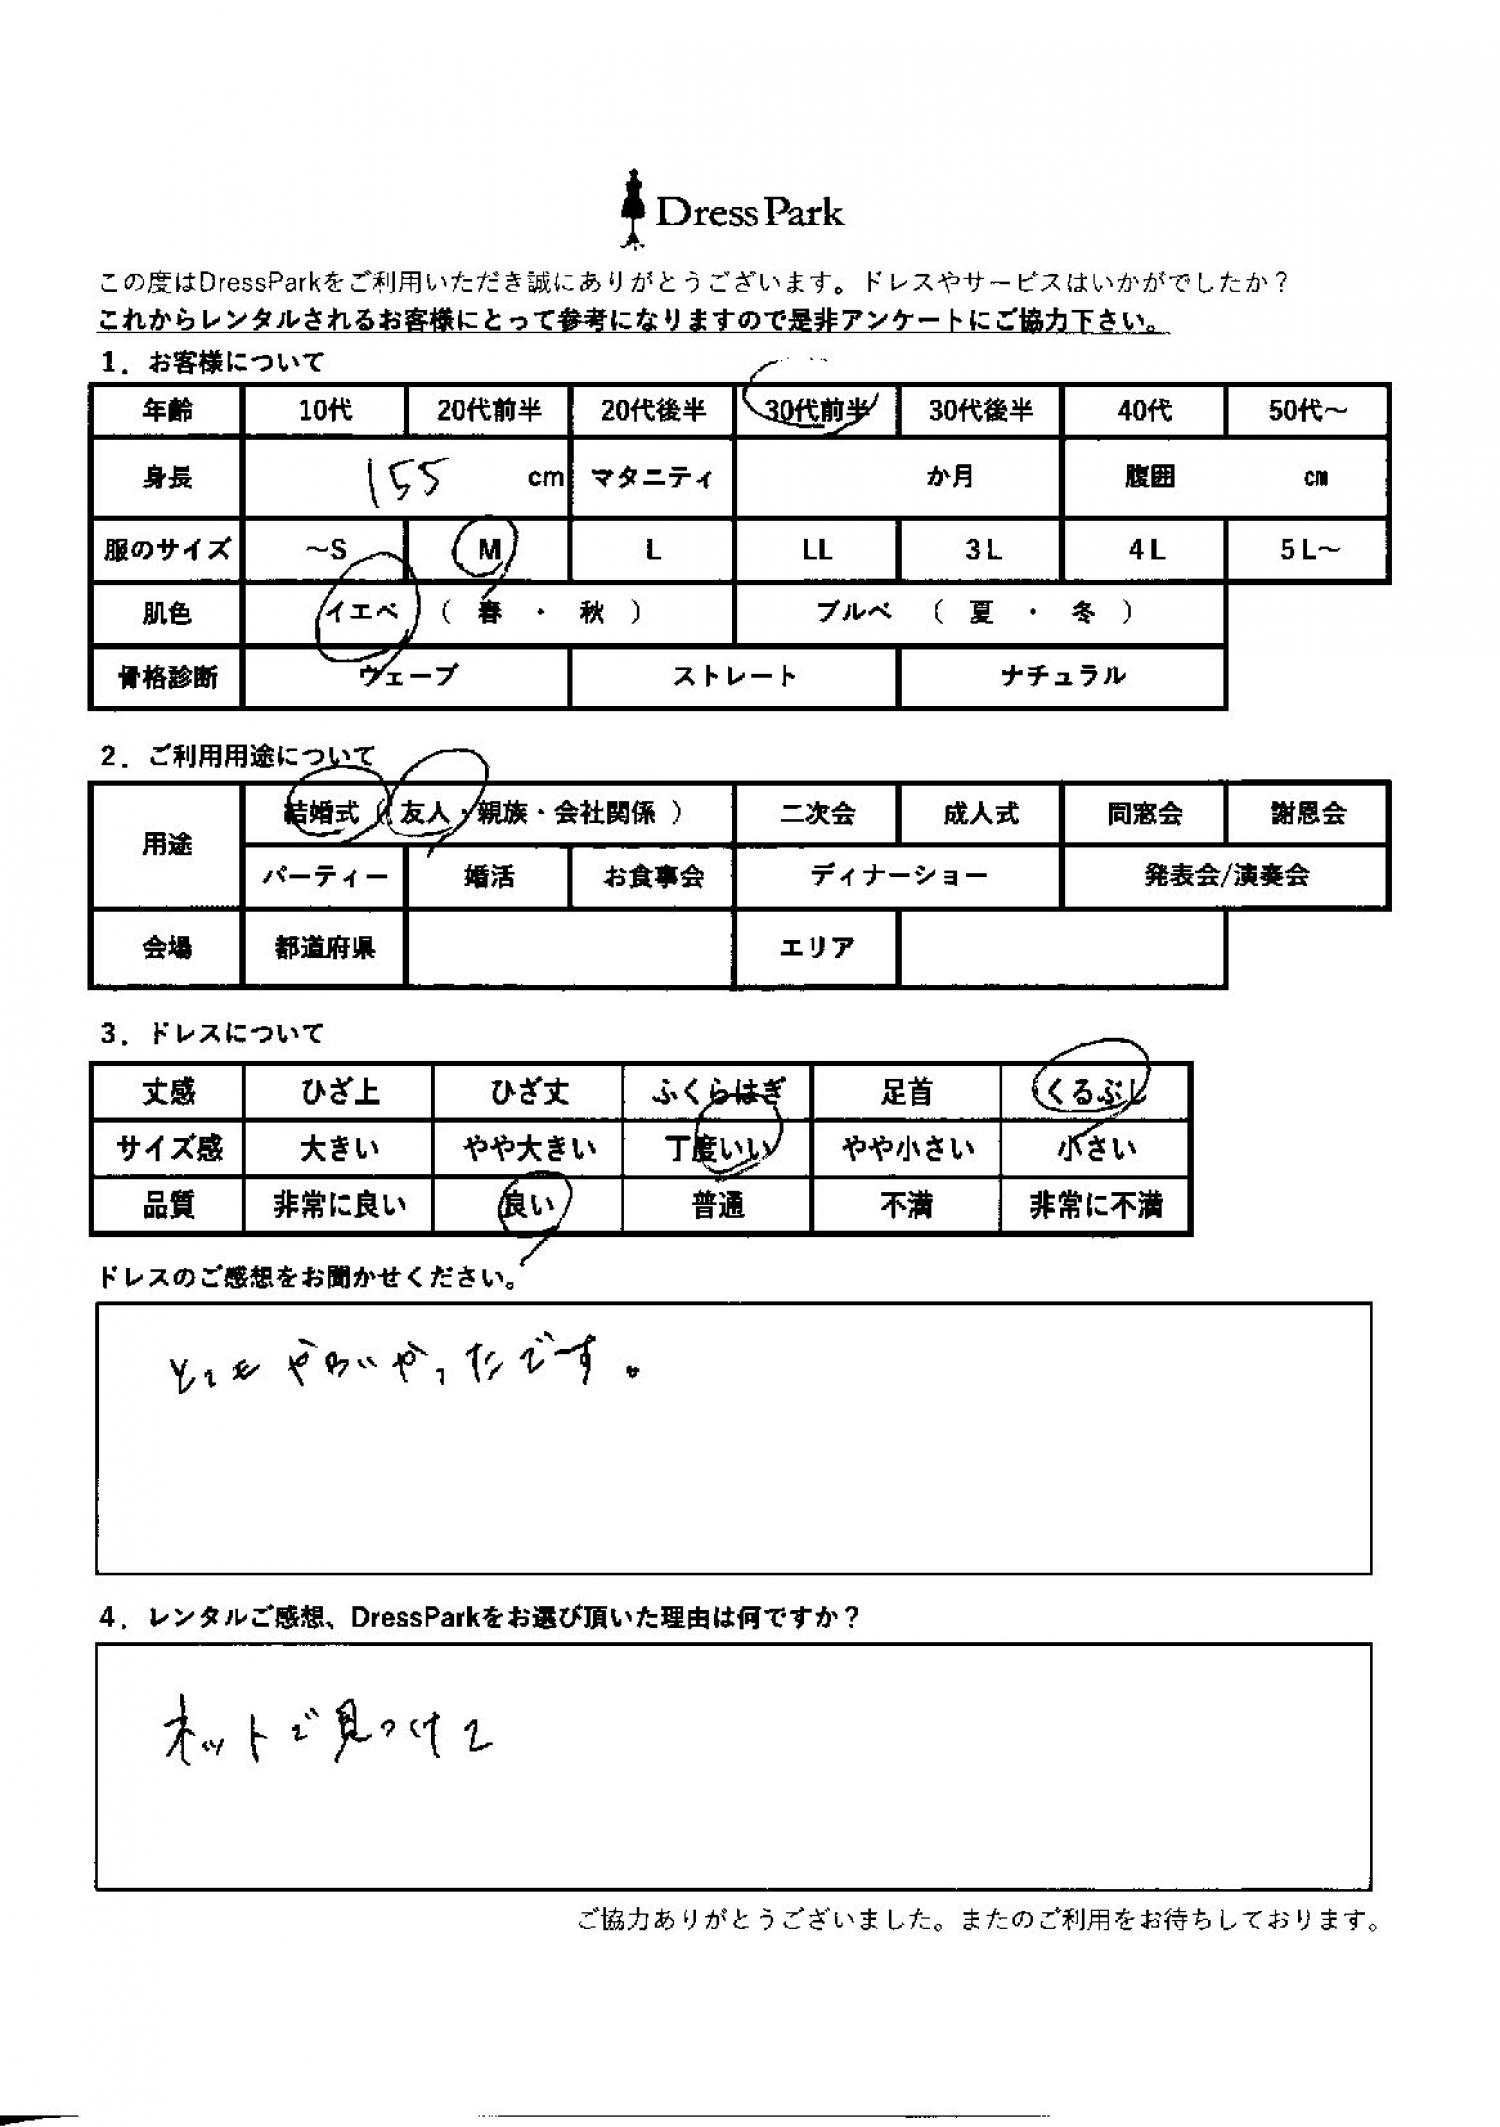 Dress Park
この度はDressParkをご利用いただき誠にありがとうございます。ドレスやサービスはいかがでしたか？
これからレンタルされるお客様にとって参考になりますので是非アンケートにご協力下さい。
1．お客様について
年齢 10代 20代前半 20代後半 30代前半 30代後半 40代 50代～
身長 155 cm マタニティ か月 腹囲 ㎝
服のサイズ ～S M L LL 3L 4L 5L～
肌色 イエベ （ 春 ・ 秋 ） ブルべ （ 夏 ・ 冬 ）
骨格診断 ウェーブ ストレート ナチュラル
2．ご利用用途について
用途 結婚式（ 友人・親族・会社関係 ） 二次会 成人式 同窓会 謝恩会
パーティー 婚活 お食事会 ディナーショー 発表会/演奏会
会場 都道府県 エリア
3．ドレスについて
丈感 ひざ上 ひざ丈 ふくらはぎ 足首 くるぶし
サイズ感 大きい やや大きい 丁度いい やや小さい 小さい
品質 非常に良い 良い 普通 不満 非常に不満
ドレスのご感想をお聞かせください。
とてもかわいかったです。
4．レンタルご感想、DressParkをお選び頂いた理由は何ですか？
ネットで見つけて
ご協力ありがとうございました。またのご利用をお待ちしております。